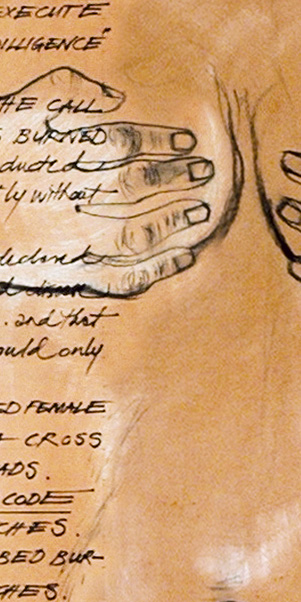 EXECUTE
ILLIGENCE"
HE CALL
S BURNED
ducted
tly without
declared
and that
ould only
ED FEMALE
CROSS
ADS.
CODE
CHES.
BED BUR-
GHES.